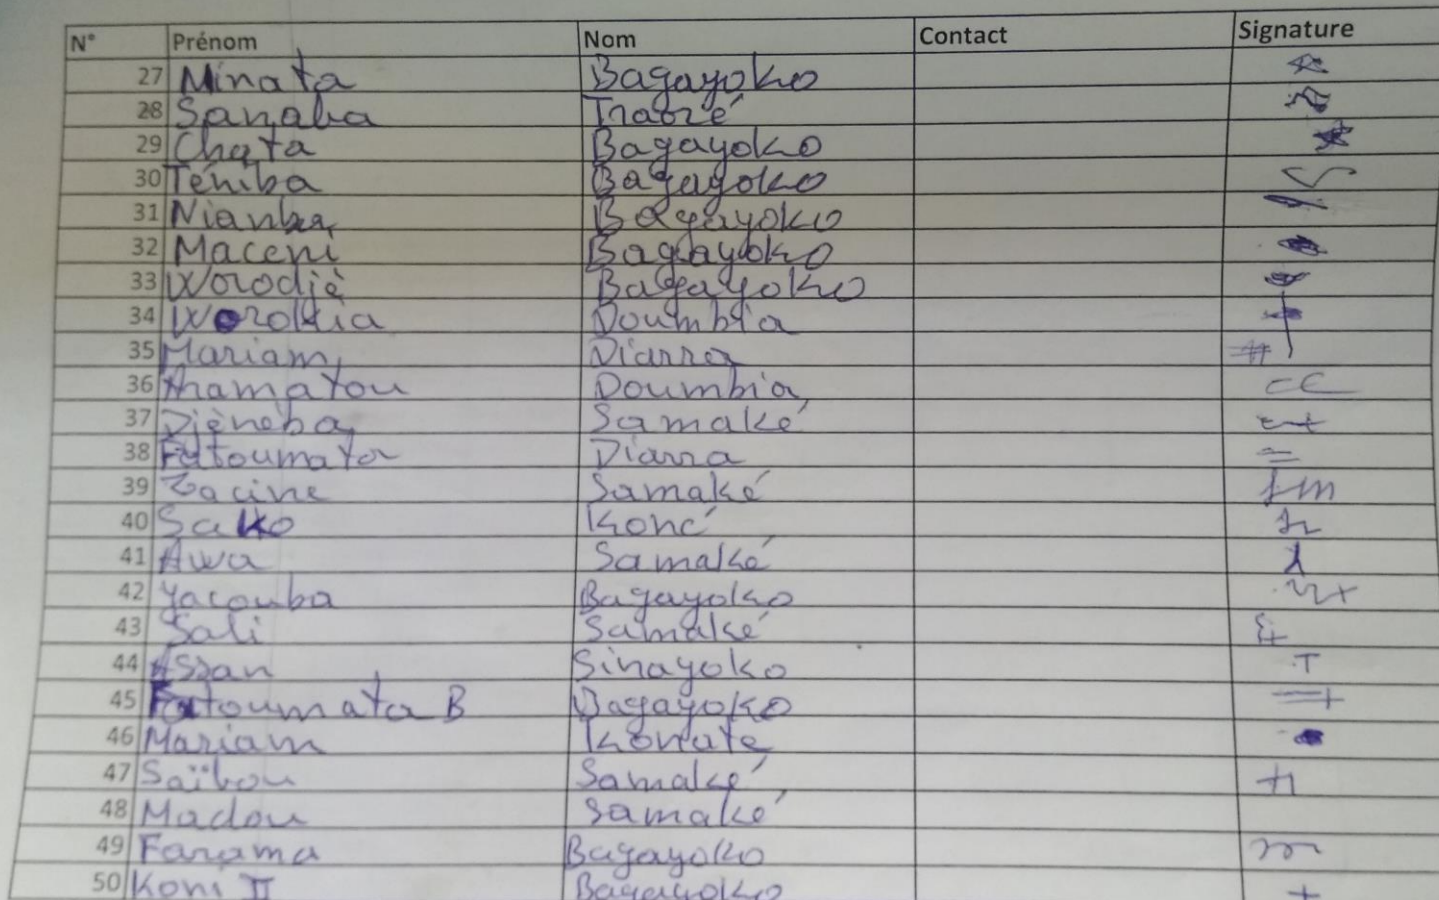 N° Prénom Nom Contact Signature
27 Minata Bagayoko
28 Sanaba Traoré
29 Chata Bagayoko
30 Téniba Bagayoko
31 Nianba Bagayoko
32 Maceni Bagayoko
33 Worodiè Bagayoko
34 Worokia Doumbia
35 Mariam Diarra
36 Aramatou Doumbia
37 Djènèba Samaké
38 Fatoumata Diarra
39 Zacine Samaké
40 Sako Koné
41 Awa Samaké
42 Yacouba Bagayoko
43 Sali Samaké
44 Assan Sinayoko
45 Fatoumata B Bagayoko
46 Mariam Konate
47 Saïbou Samaké
48 Madou Samaké
49 Farama Bagayoko
50 Koni II Bagayoko